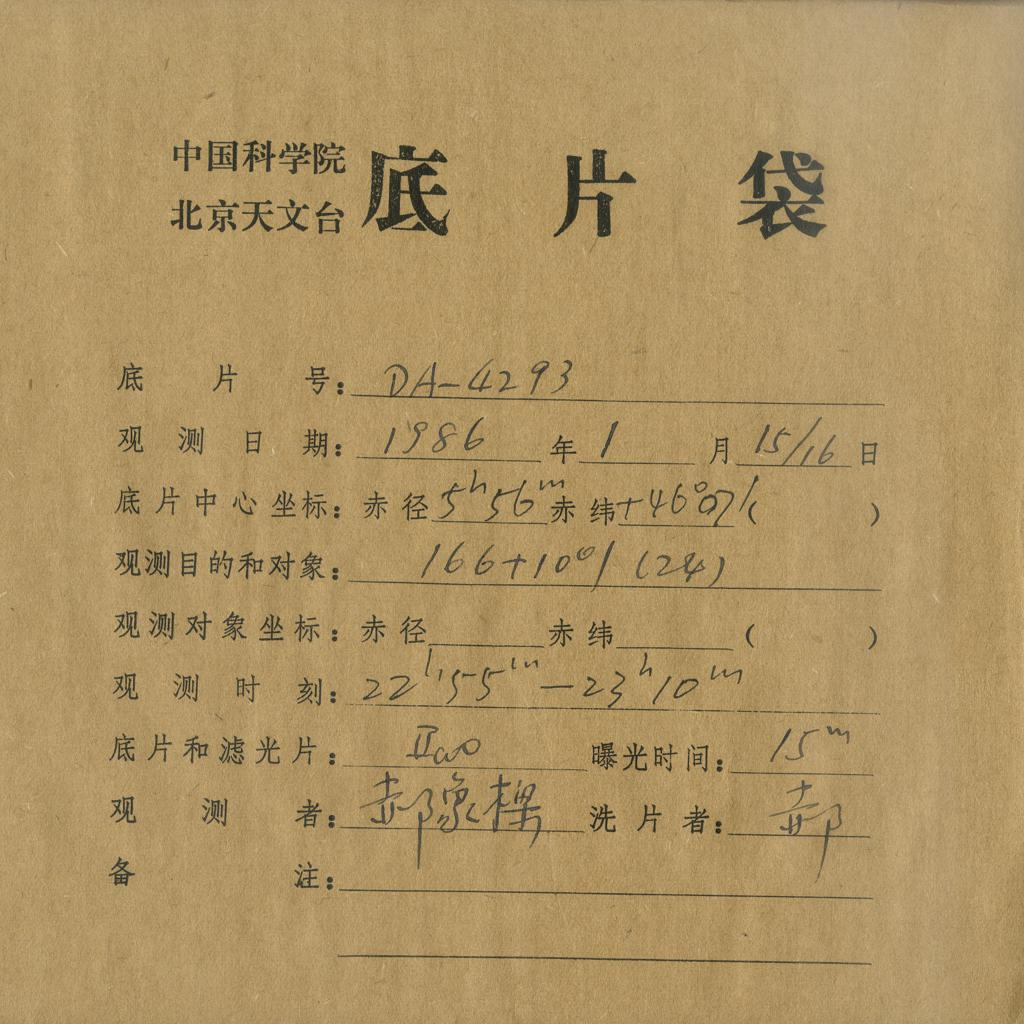 中国科学院
北京天文台
底片袋
底片号: DA-4293
观测日期: 1986年1月15/16日
底片中心坐标: 赤径5ʰ56ᵐ赤纬+46°07′( )
观测目的和对象: 166+10°1 (24)
观测对象坐标: 赤径 赤纬 ( )
观测时刻: 22ʰ55ᵐ-23ʰ10ᵐ
底片和滤光片: IIaO 曝光时间: 15ᵐ
观测者: 郝象樑 洗片者: 郝
备注: